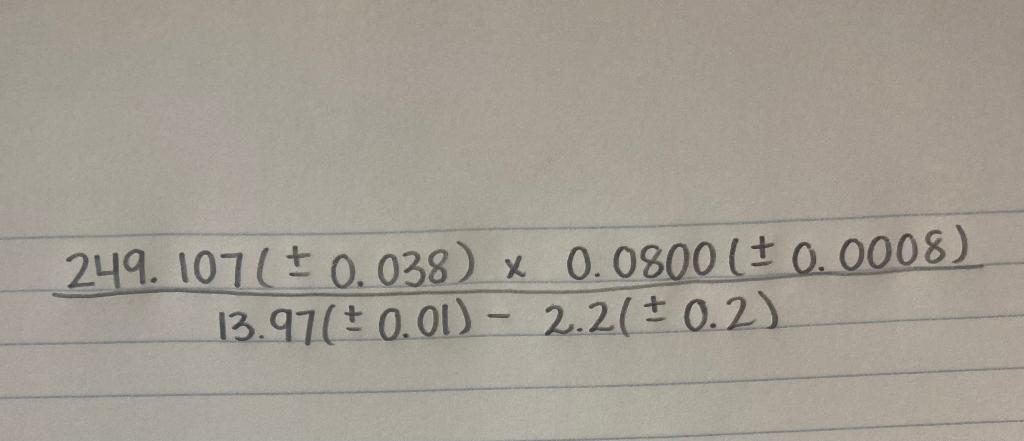 249.107(± 0.038) x 0.0800(± 0.0008)
13.97(± 0.01) - 2.2(± 0.2)